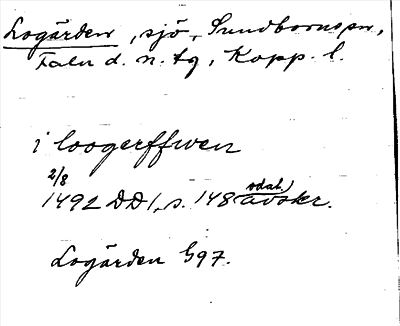 Logärden, sjö, Sundbornspn,
Falu d. n. tg, Kopp. l.
i loogerffwen
2/8
1492 DD 1, s. 148 avskr.
Logärden G97.